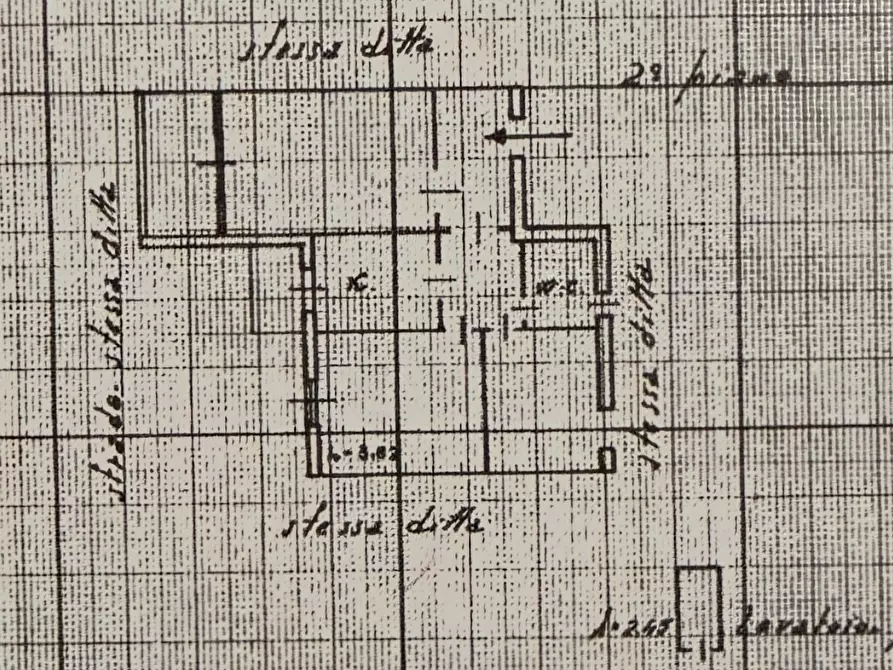 stessa ditta
2° piano
strada - stessa ditta
K.
w.c.
stessa ditta
h= 3,02
stessa ditta
h= 2.45
Lavatoio